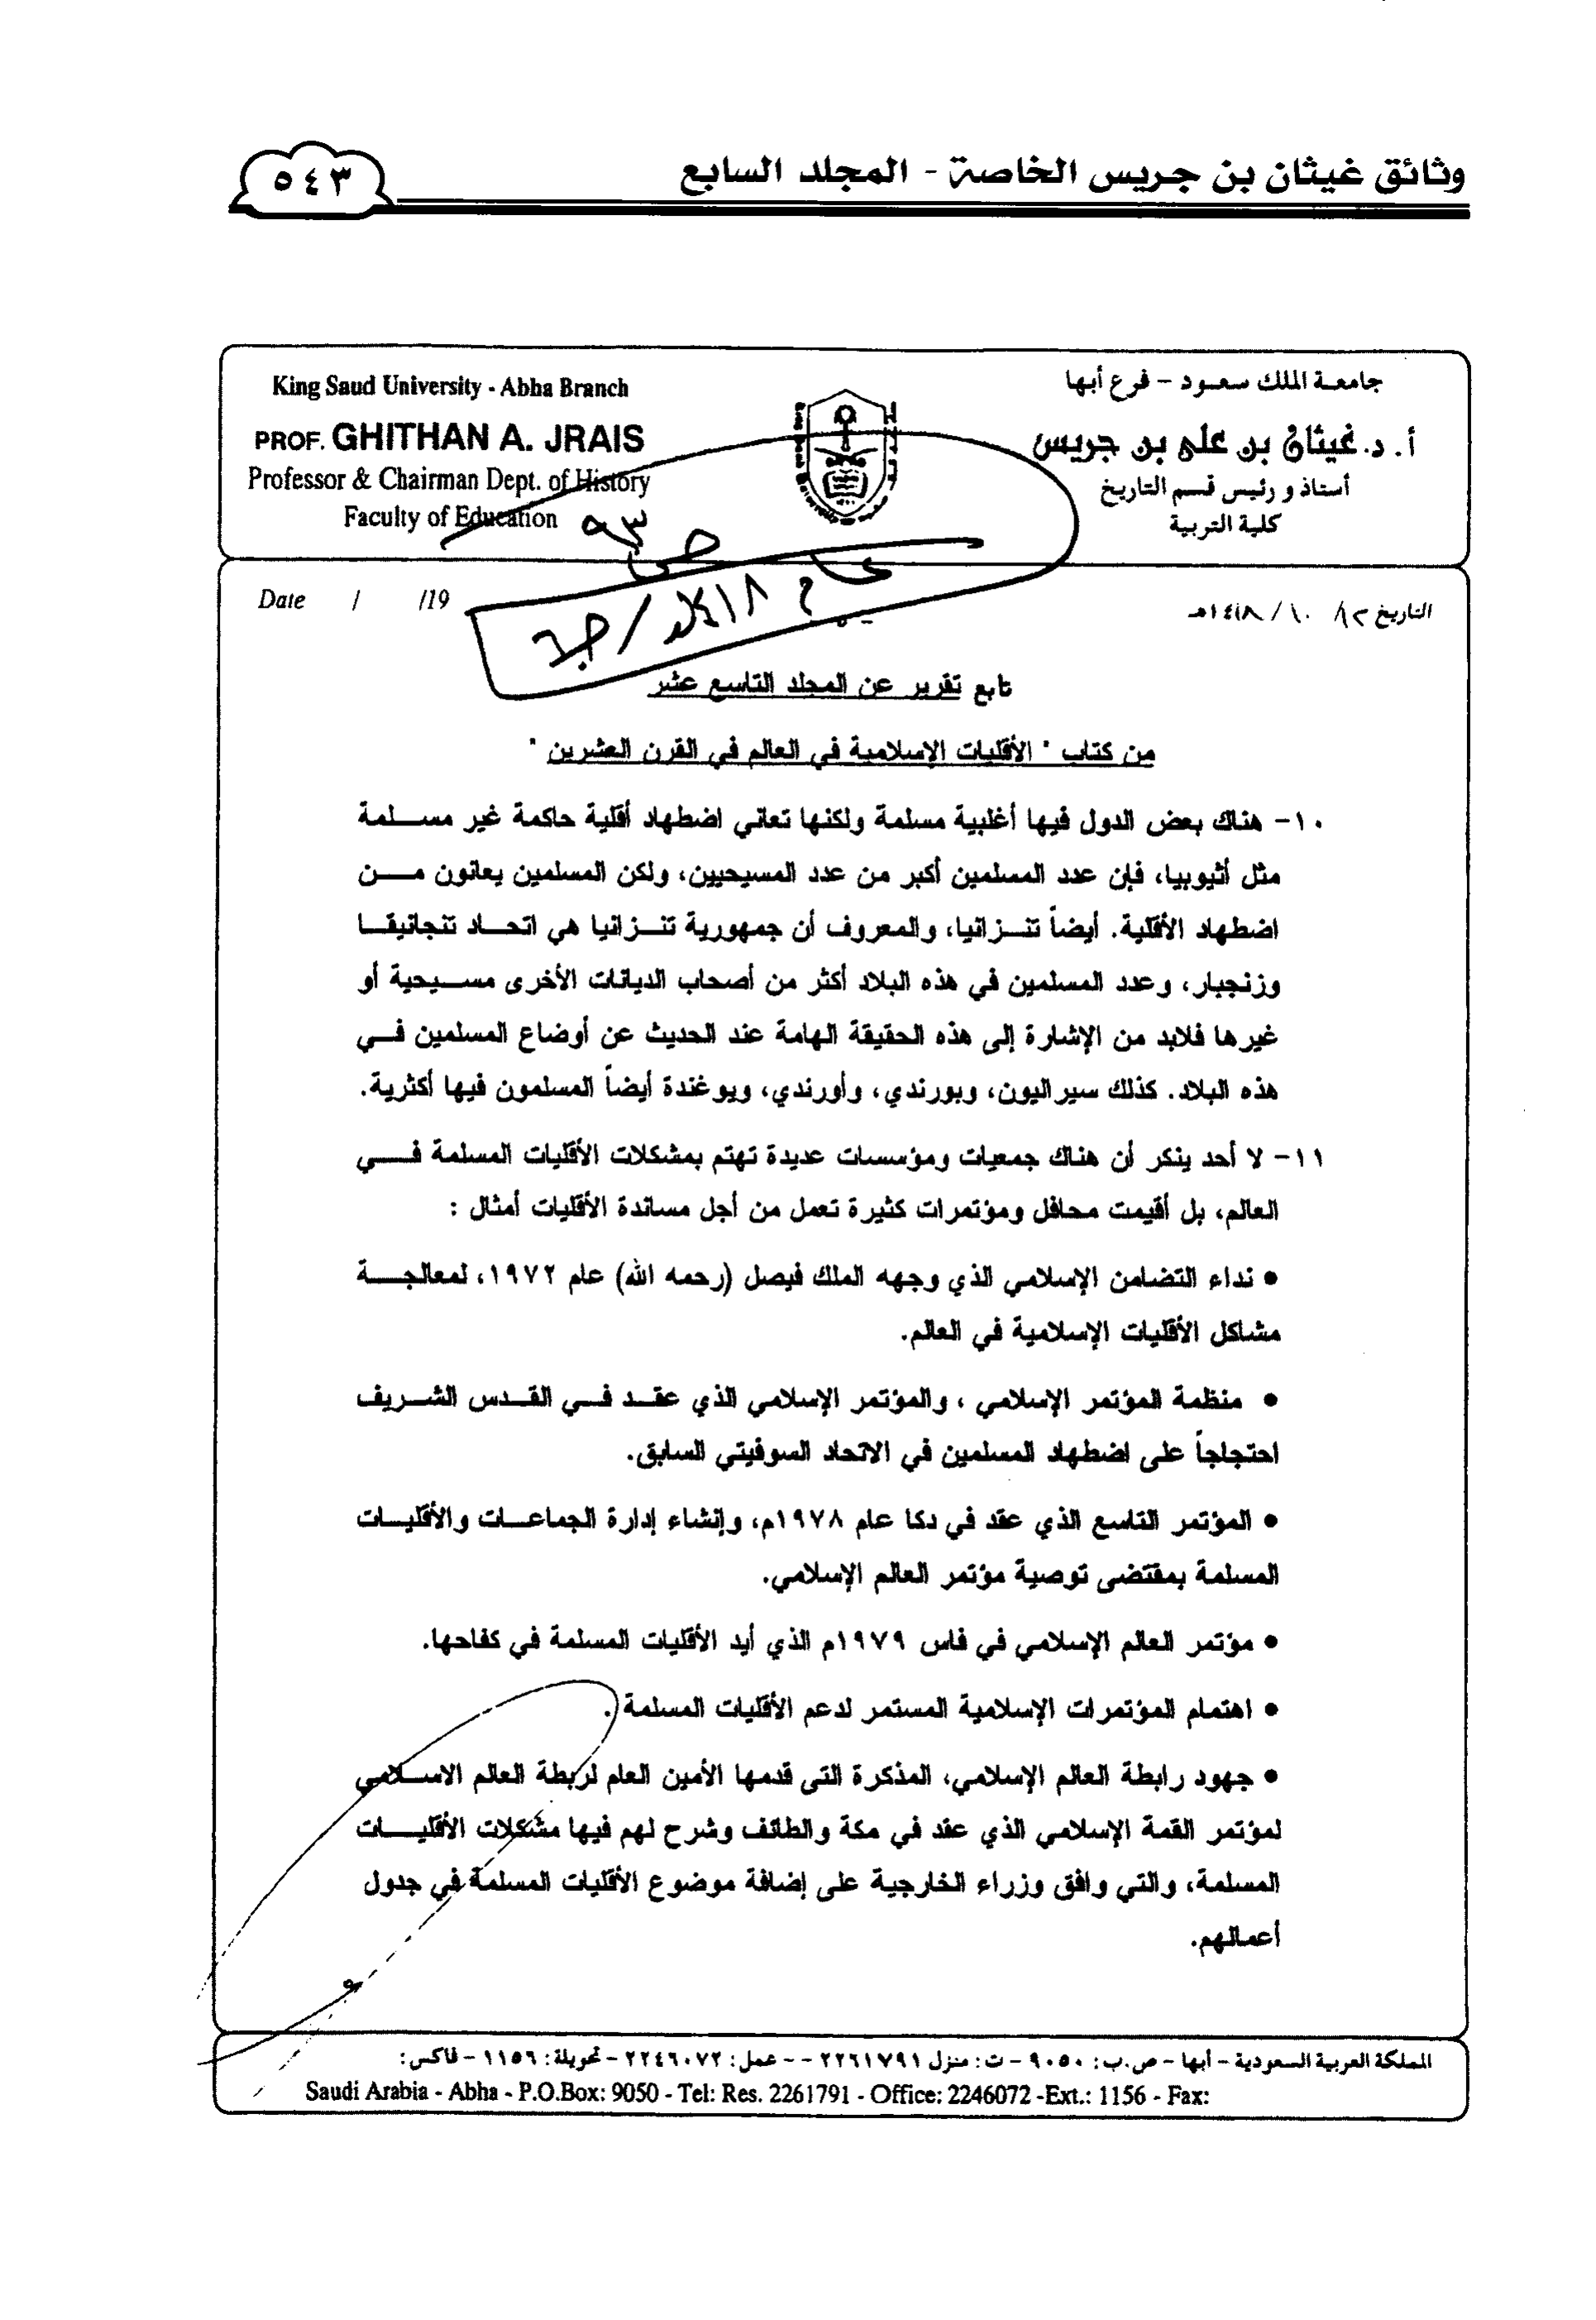 وثائق غيثان بن جريس الخاصة - المجلد السابع
٥٤٣
King Saud University - Abha Branch
PROF. GHITHAN A. JRAIS
Professor & Chairman Dept. of History
Faculty of Education
جامعة الملك سعود - فرع أبها
أ. د. غيثان بن علي بن جريس
أستاذ و رئيس قسم التاريخ
كلية التربية
ص ٩٣
عام ١٤١٨هـ / جـ٦
Date / /19
التاريخ ١٢/ ١٠ /١٤١٨هـ
تابع تقرير عن المجلد التاسع عشر
من كتاب " الأقليات الإسلامية في العالم في القرن العشرين "
١٠- هناك بعض الدول فيها أغلبية مسلمة ولكنها تعاني اضطهاد أقلية حاكمة غير مسلمة
مثل أثيوبيا، فإن عدد المسلمين أكبر من عدد المسيحيين، ولكن المسلمين يعانون من
اضطهاد الأقلية. أيضاً تنزانيا، والمعروف أن جمهورية تنزانيا هي اتحاد تنجانيقا
وزنجبار، وعدد المسلمين في هذه البلاد أكثر من أصحاب الديانات الأخرى مسيحية أو
غيرها فلابد من الإشارة إلى هذه الحقيقة الهامة عند الحديث عن أوضاع المسلمين في
هذه البلاد. كذلك سيراليون، وبورندي، وأورندي، ويوغندة أيضاً المسلمون فيها أكثرية.
١١- لا أحد ينكر أن هناك جمعيات ومؤسسات عديدة تهتم بمشكلات الأقليات المسلمة في
العالم، بل أقيمت محافل ومؤتمرات كثيرة تعمل من أجل مساندة الأقليات أمثال :
• نداء التضامن الإسلامي الذي وجهه الملك فيصل (رحمه الله) عام ١٩٧٢، لمعالجة
مشاكل الأقليات الإسلامية في العالم.
• منظمة المؤتمر الإسلامي ، والمؤتمر الإسلامي الذي عقد في القدس الشريف
احتجاجاً على اضطهاد المسلمين في الاتحاد السوفيتي السابق.
• المؤتمر التاسع الذي عقد في دكا عام ١٩٧٨م، وإنشاء إدارة الجماعات والأقليات
المسلمة بمقتضى توصية مؤتمر العالم الإسلامي.
• مؤتمر العالم الإسلامي في فاس ١٩٧٩م الذي أيد الأقليات المسلمة في كفاحها.
• اهتمام المؤتمرات الإسلامية المستمر لدعم الأقليات المسلمة .
• جهود رابطة العالم الإسلامي، المذكرة التى قدمها الأمين العام لربطة العالم الاسلامي
لمؤتمر القمة الإسلامي الذي عقد في مكة والطائف وشرح لهم فيها مشكلات الأقليات
المسلمة، والتي وافق وزراء الخارجية على إضافة موضوع الأقليات المسلمة في جدول
أعمالهم.
المملكة العربية السعودية - أبها - ص.ب: ٩٠٥٠ - ت: منزل ٢٢٦١٧٩١ - - عمل: ٢٢٤٦٠٧٢ - تحويلة: ١١٥٦ - فاكس:
Saudi Arabia - Abha - P.O.Box: 9050 - Tel: Res. 2261791 - Office: 2246072 -Ext.: 1156 - Fax: